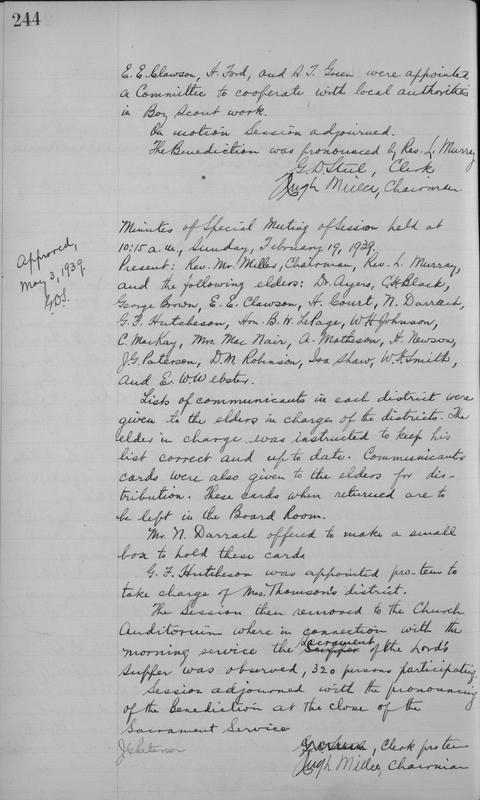 244
E. E. Clawson, H. Ford, and A. T. Green were appointed
a Committee to cooperate with local authorities
in Boy Scout work.
On motion Session adjourned.
The Benediction was pronounced by Rev. L. Murray
G D Steel, Clerk
Hugh Miller, Chairman.
Approved,
May 3, 1939.
G.D.S.
Minutes of Special Meeting of Session held at
10:15 a.m., Sunday, February 19, 1939.
Present: Rev. Mr. Miller, Chairman, Rev. L. Murray,
and the following elders: Dr. Ayers, C. H. Black,
George Brown, E. E. Clawson, H. Court, N. Darrach,
G. F. Hutcheson, Hon. B. W. LePage, W H Johnson,
C. MacKay, Mrs. Mac Nair, A. Matheson, H. Newson,
J. G. Paterson, D. M Robinson, Ira Shaw, W. F. Smith,
and E. W. Webster.
Lists of communicants in each district were
given to the elders in charge of the districts. The
elder in charge was instructed to keep his
list correct and up to date. Communicants
cards were also given to the elders for dis-
tribution. These cards when returned are to
be left in the Board Room.
Mr. N. Darrach offered to make a small
box to hold these cards
G. F. Hutcheson was appointed pro-tem to
take charge of Mrs. Thomson's district.
The Session then removed to the Church
Auditorium where in connection with the
morning service the Sacrament Supper of the Lord's
Supper was observed, 320 persons participating.
Session adjourned with the pronouncing
of the Benediction at the close of the
Sacrament Service
J G Paterson
, Clerk protem
Hugh Miller, Chairman